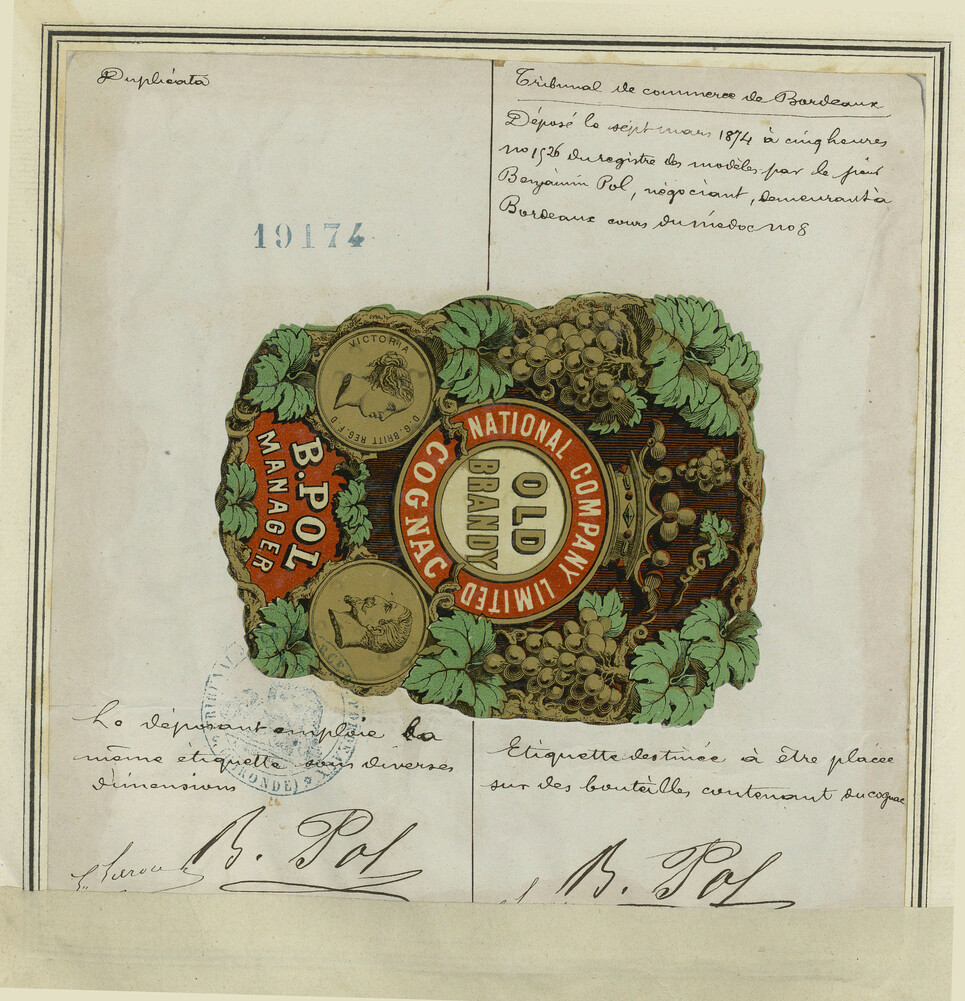 Duplicata
Tribunal de commerce de Bordeaux
Déposé le sept mars 1874 à cinq heures
no 1526 du registre des modèles par le sieur
Benjamin Pol, négociant, demeurant à
Bordeaux cours du médoc no 8
19174
VICTORIA
D.G. BRITT REG. F.D.
NATIONAL COMPANY LIMITED
COGNAC
OLD
BRANDY
B. POL
MANAGER
Le déposant emploie la
même étiquette sous diverses
dimensions
(GIRONDE)
Etiquette destinée à être placée
sur des bouteilles contenant du cognac
B. Pol
B. Pol